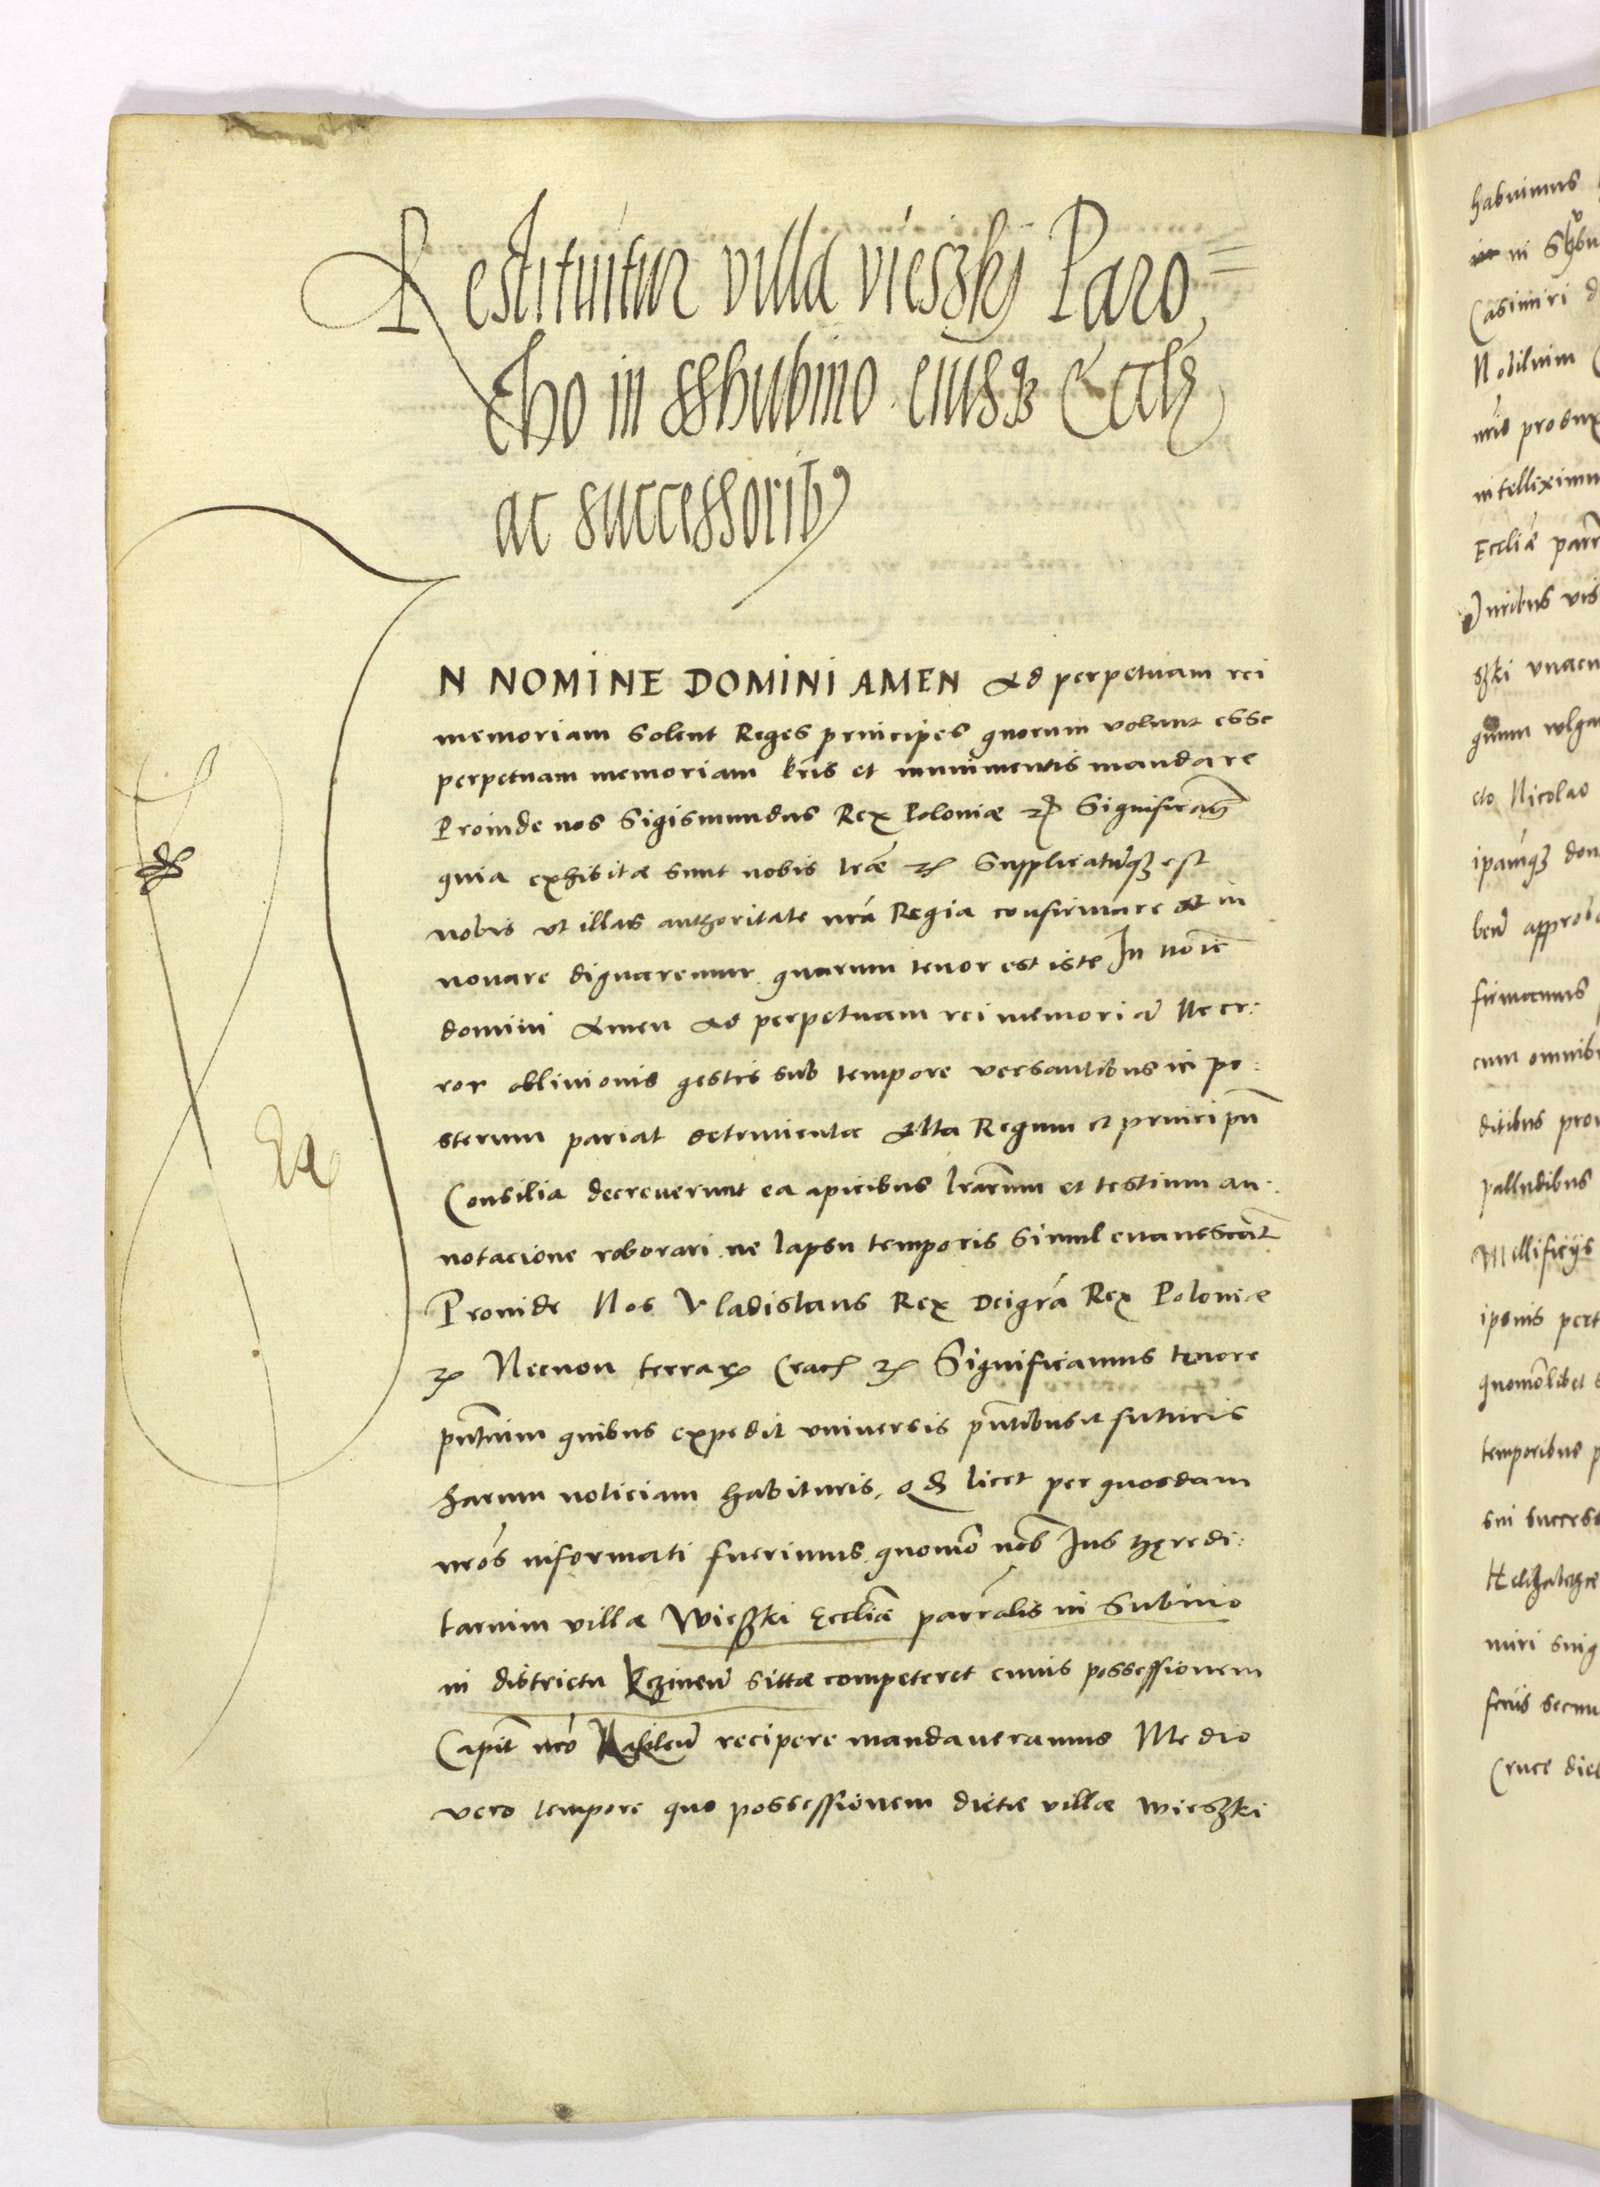 Restituitur villa vieszkj Paro=
cho in sshubino eiusqz Eccle
ac successorib9
IN NOMINE DOMINI AMEN Ad perpetuam rei
memoriam solent Reges principes quorum volunt esse
perpetuam memoriam lris et munimentis mandare
Proinde nos Sigismundus Rex Poloniæ etc Significam9
quia exhibitæ sunt nobis lræ etc Supplicatūqz est
nobis vt illas authoritate nrá Regia confirmare et in
novare dignaremur quarum tenor est iste In noīe
domini Amen Ad perpetuam rei memoriā Ne er:
ror oblivionis gestis sub tempore versantibus in po:
sterum pariat detrimenta Alta Regum et principū
Consilia decreverunt ea apicibus lrarum et testium an:
notacione roborari ne lapsu temporis simul evanescāt
Proinde Nos Vladislaus Rex Deigrá Rex Poloniæ
etc Necnon terrarum Crac etc Significamus tenore
pntium quibus expedit vniversis pntibus et futuris
harum noticiam habituris, qd licet per quosdam
nrós informati fuerimus quomō nob Ius hęredi:
tarium villæ Wieszki Eccliæ parrālis in Subino
in districtu Kczineñ sittæ competeret cuius possessionem
Capit nró Nakleñ recipere mandaveramus Medio
vero tempore quo possessionem dictæ villæ Wieszki
habuimus
in
Casimiri
Nobilium
nris
intelleximus
Eccliæ
Iuribus
szki
eto Nicolao
ipámqz
firmamus
cum
ditibus
palludibus
Mellificijs
ipsius
quomolibet
temporibus
sui
miri
Cruce